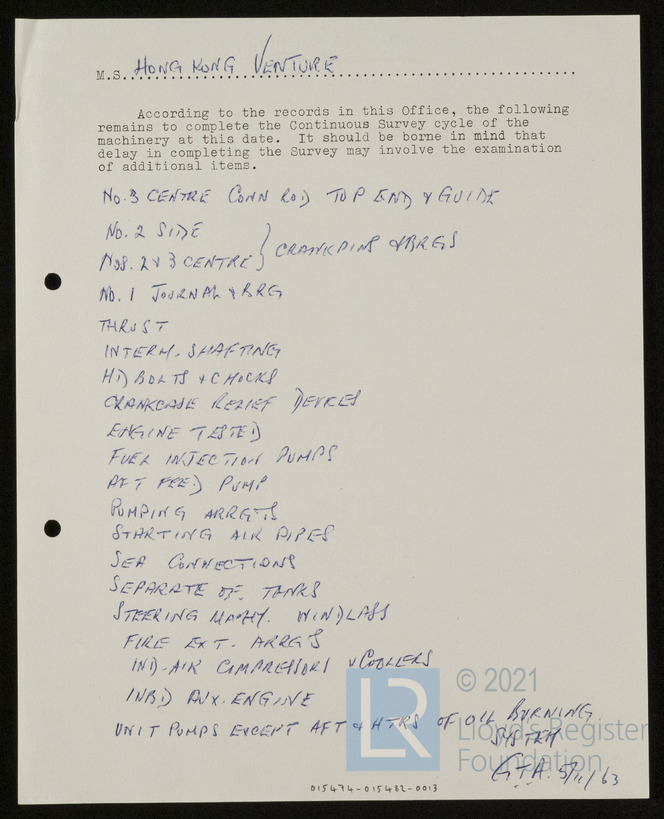 M.S. HONG KONG VENTURE
According to the records in this Office, the following
remains to complete the Continuous Survey cycle of the
machinery at this date. It should be borne in mind that
delay in completing the Survey may involve the examination
of additional items.
No. 3 CENTRE CONN ROD TOP END & GUIDE
No. 2 SIDE
Nos. 2 & 3 CENTRE } CRANKPINS & BRGS
No. 1 JOURNAL & BRG
THRUST
INTERM. SHAFTING
HD BOLTS & CHOCKS
CRANKCASE RELIEF DEVICES
ENGINE TESTED
FUEL INJECTION PUMPS
AFT FEED PUMP
PUMPING ARRGTS
STARTING AIR PIPES
SEA CONNECTIONS
SEPARATE OF. TANKS
STEERING MACHY. WINDLASS
FIRE EXT. ARRGTS
IND. AIR COMPRESSORS & COOLERS
INBD AUX. ENGINE
UNIT PUMPS EXCEPT AFT & HTRS OF OIL BURNING
SYSTEM
G.T.A. 5/11/63
LR
© 2021
Lloyd's Register
Foundation
015474-015482-0013